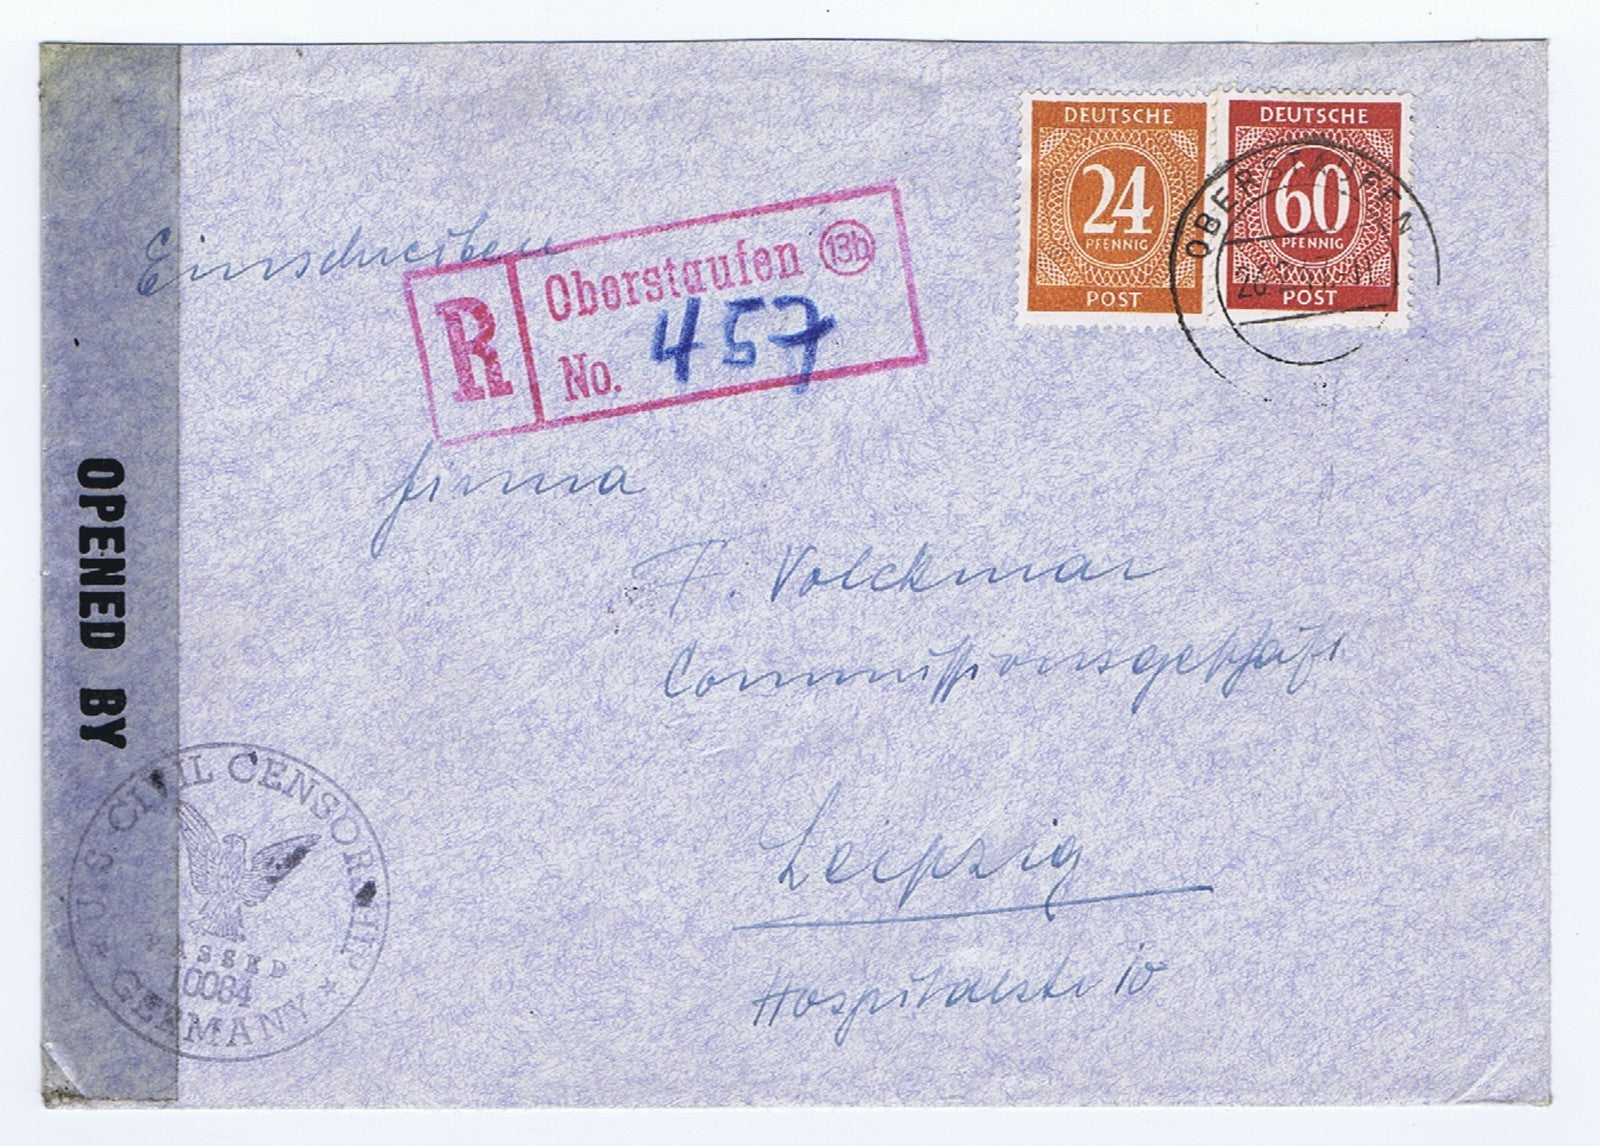 DEUTSCHE
24
PFENNIG
POST
DEUTSCHE
60
PFENNIG
POST
OBERSTAUFEN
Einschreiben
R
Oberstaufen 13b
No. 457
Firma
F. Volckmar
Commissionsgeschäft
Leipzig
Hospitalstr 10
OPENED BY
U.S. CIVIL CENSORSHIP
PASSED
10084
GERMANY